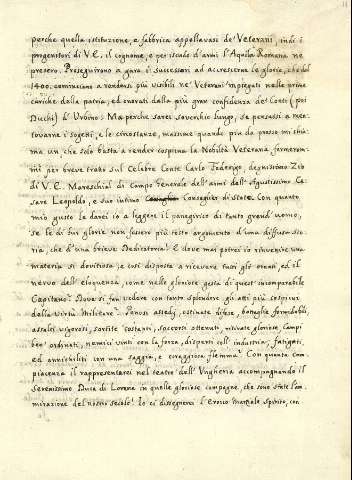 perche quella istituzione, e fabbrica appellavasi de' Veterani, indi i
progenitori di V.E. il cognome, e per iscudo d'armi l'Aquila Romana ne
presero. Proseguirono a gara i successori ad accrescerne le glorie, che dal
1400. cominciano a rendersi più visibili ne' Veterani impiegati nelle prime
cariche della patria, ed onorati dalla più gran confidenza de' Conti (poi
Duchi) d'Urbino: Ma perche sarei soverchio lungo, se pensassi a mentovarne
i sogetti, e le circostanze, massime quando più da presso mi chiama
un che solo basta a render cospicua la Nobiltà Veterana, fermerommi
per breve tratto sul Celebre Conte Carlo Federigo, degnissimo Zio
di V.E. Mareschial di Campo Generale dell'armi dell'Agustissimo Cesare
Leopoldo, e suo intimo Consiglier di Stato. Con quanto
mio gusto le darei io a leggere il panegirico di tanto grand'uomo,
se le di lui glorie non fossero più tosto argumento d'una diffusa storia,
che d'una brieve Dedicatoria! E dove mai potrei io rinvenire una
materia si dovitiosa, e così disposta a ricevere tutti gli ornati, ed il
nervo dell'eloquenza, come nelle gloriose gesta di quest'incomparabile
Capitano? Dove si fan vedere con tanto splendore gli atti più cospicui
della Virtù Militare? Penosi assedj, ostinate difese, battaglie formidabili
assalti vigorosi, sortite costanti, soccorsi ottenuti, ritirate gloriose, campi
ben' ordinati, nemici vinti con la forza, dispersi coll' industria, fatigati,
ed annichilati con una saggia, e coraggiosa flemma? Con quanta compiacenza
il rappresentarei nel teatro dell'Ungheria accompagnando il
Serenissimo Duca di Lorena in quelle gloriose campagne, che sono state l'ammirazione
del nostro secolo? Io ci disegnerei l'eroico Martiale Spirito, con